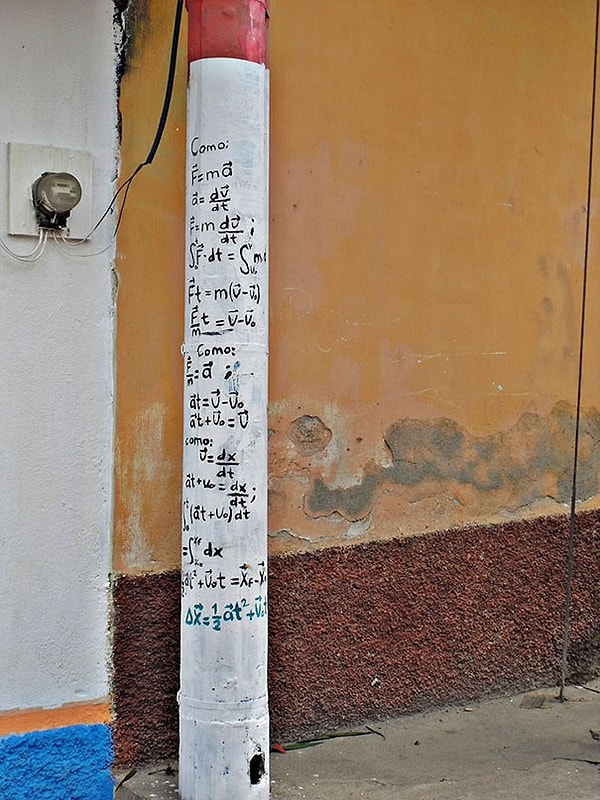 Como:
F⃗=ma⃗
a⃗=dv⃗/dt
F⃗=m dv⃗/dt ;
∫₀ᵗF⃗·dt = ∫ᵥ₀ᵛ m
F⃗t = m(v⃗-v⃗₀)
F⃗/m t = v⃗-v⃗₀
Como:
F⃗/m = a⃗ ;
a⃗t=v⃗-v⃗₀
a⃗t+v⃗₀=v⃗
como:
v⃗=dx⃗/dt
a⃗t+v₀=dx⃗/dt;
∫₀ᵗ(a⃗t+v₀)dt
=∫dx
a⃗t²+v⃗₀t =x⃗F-x⃗
Δx⃗=½a⃗t²+v⃗₀t